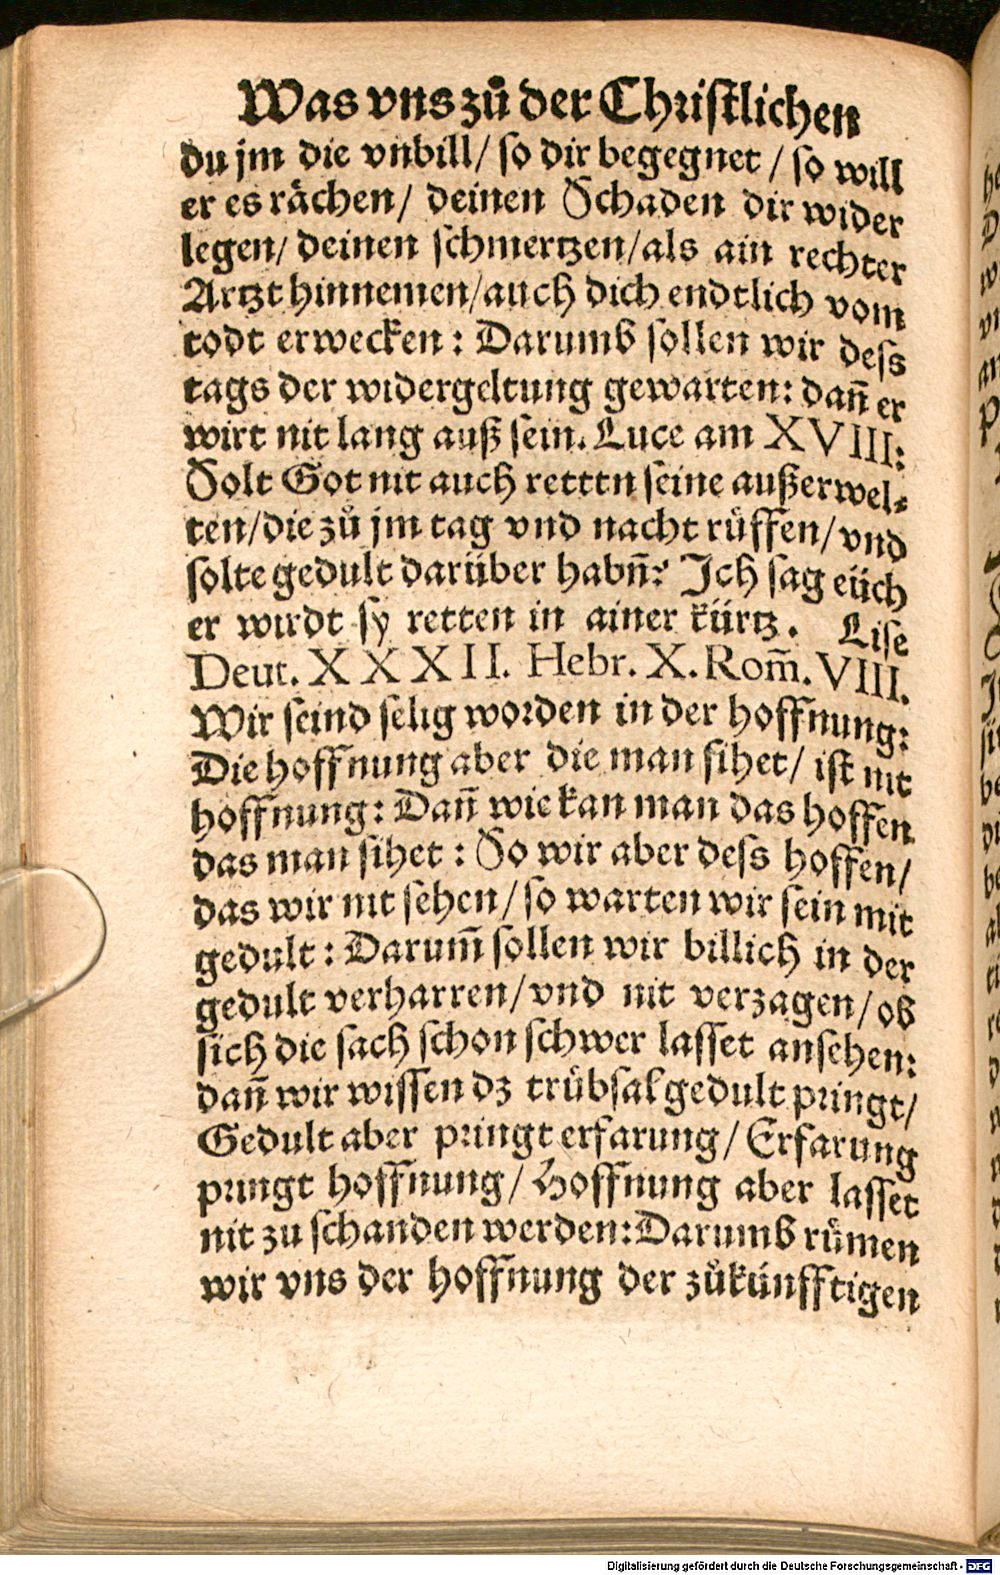 Was vns zů der Christlichen
du jm die vnbill/ so dir begegnet / so will
er es rächen/ deinen Schaden dir wider
legen/ deinen schmertzen/als ain rechter
Artzt hinnemen/auch dich endtlich vom
todt erwecken: Darumb sollen wir dess
tags der widergeltung gewarten: dañ er
wirt nit lang auß sein. Luce am XVIII:
Solt Got nit auch retttn seine außerwel⸗
ten/die zů jm tag vnd nacht rüffen/vnd
solte gedult darüber habñ? Ich sag eüch
er wirdt sy retten in ainer kürtz. Lise
Deut. XXXII. Hebr. X. Rom̄. VIII.
Wir seind selig worden in der hoffnung:
Die hoffnung aber die man sihet/ ist nit
hoffnung: Dañ wie kan man das hoffen
das man sihet : So wir aber dess hoffen/
das wir nit sehen/so warten wir sein mit
gedult: Darum̄ sollen wir billich in der
gedult verharren/vnd nit verzagen/ob
sich die sach schon schwer lasset ansehen:
dañ wir wissen dz trübsal gedult pringt/
Gedult aber pringt erfarung/ Erfarung
pringt hoffnung/ Hoffnung aber lasset
nit zu schanden werden: Darumb rümen
wir vns der hoffnung der zůkünfftigen
Digitalisierung gefördert durch die Deutsche Forschungsgemeinschaft - DFG